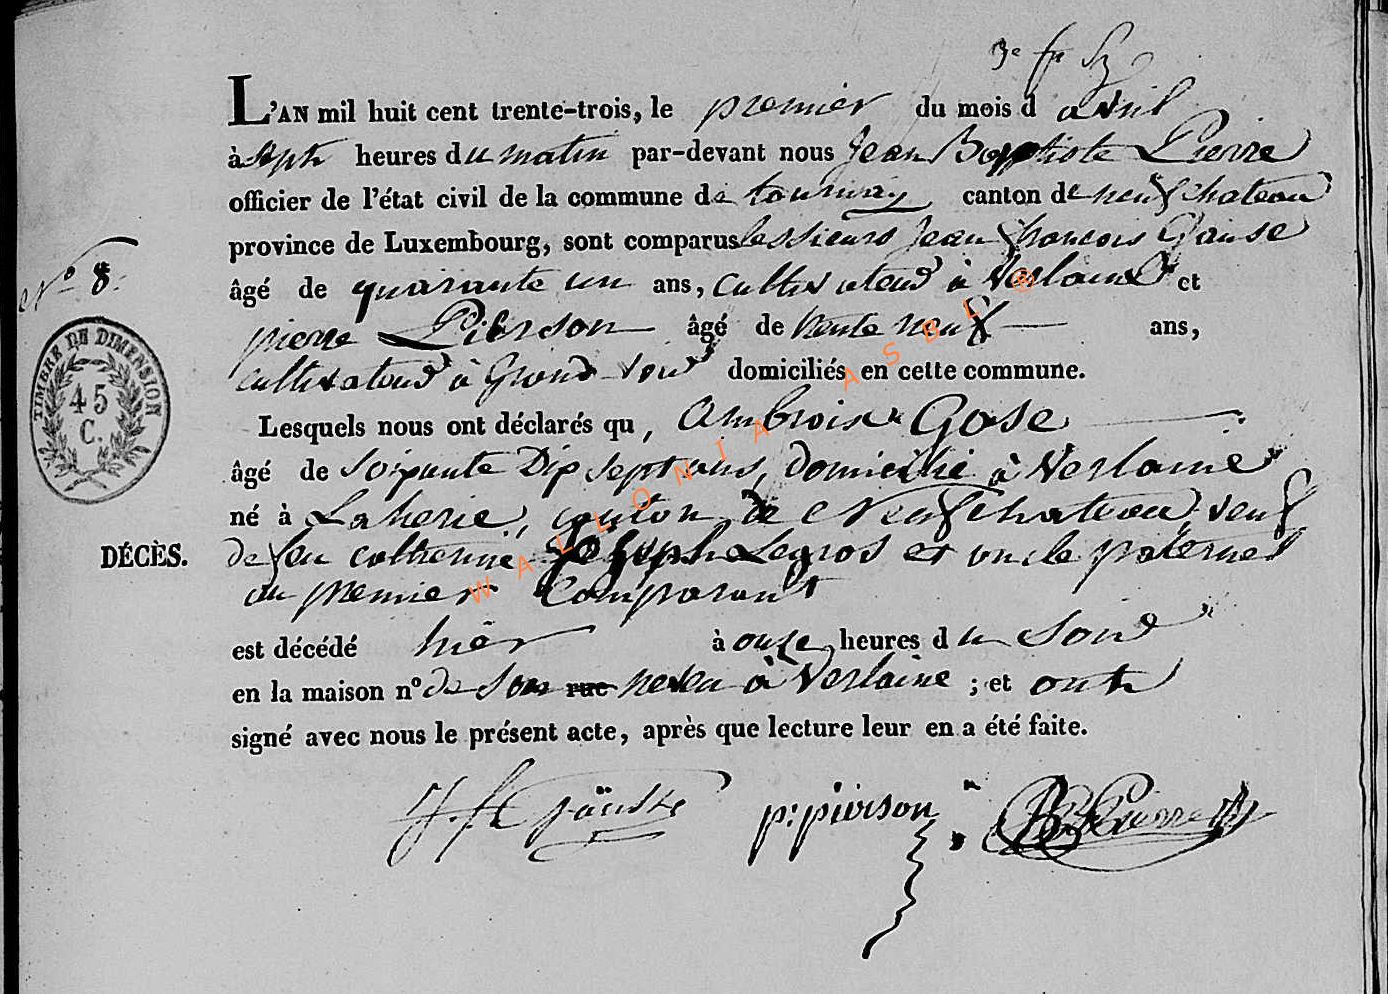 3e fr
L'AN mil huit cent trente-trois, le premier du mois d avril
à Sept heures du matin par-devant nous Jean Baptiste Pierre
officier de l'état civil de la commune de tournay canton de neufchateau
province de Luxembourg, sont comparus les sieurs Jean françois Gause
N° 8.
âgé de quarante un ans, cultivateur à Verlaine et
pierre Pierson âgé de trente neuf ans,
cultivateur à Grand-voir domiciliés en cette commune.
TIMBRE DE DIMENSION
45
C.
Lesquels nous ont déclarés qu, Ambroise Gose
âgé de soixante Dix sept ans, domicilié à Verlaine
né à Laherie, canton de Neufchateau, veuf
DÉCÈS.
de feu catherine Joseph Legros et oncle paternel
du premier Comparant
est décédé hier à onze heures du Soir
en la maison n° de Son rue neveu à Verlaine ; et ont
signé avec nous le présent acte, après que lecture leur en a été faite.
p: pierson
WALLONIA ASBL ®